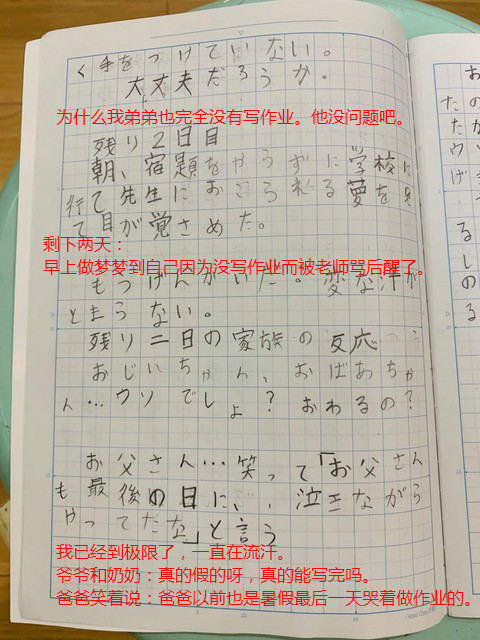 く手をつけていない。
大丈夫だろうか。
为什么我弟弟也完全没有写作业。他没问题吧。
残り2日目
朝、宿題をやらずに学校に
行て先生におこられる夢を見
て目が覚さめた。
剩下两天：
早上做梦梦到自己因为没写作业而被老师骂后醒了。
もうげんかいだ。変な汗が
とまらない。
残り二日の家族の反応
おじいちゃん、おばあちゃ
ん…ウソでしょ？おわるの？
お父さん…笑って「お父さん
も最後の日に、泣きながら
やってたな」と言う
我已经到极限了，一直在流汗。
爷爷和奶奶：真的假的呀，真的能写完吗。
爸爸笑着说：爸爸以前也是暑假最后一天哭着做作业的。
お
たの
たか
げ
るし
の
る